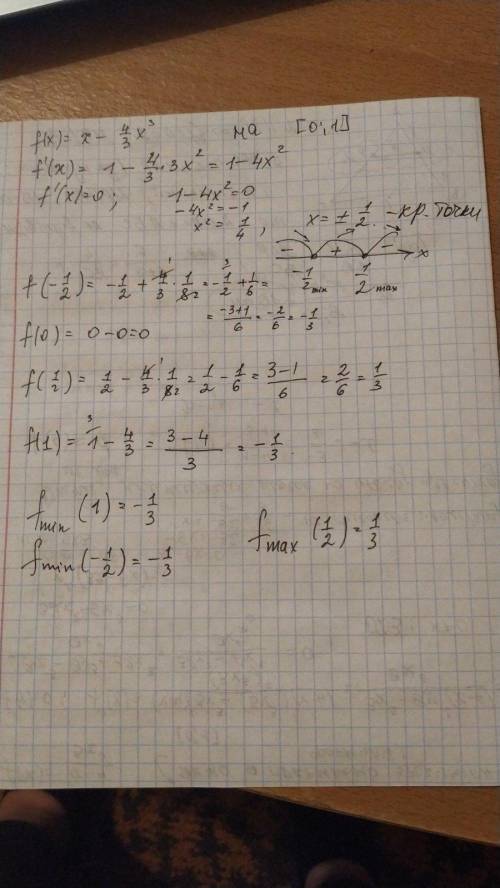 f(x) = x - 4/3 x³ на [0; 1]
f'(x) = 1 - 4/3 · 3x² = 1 - 4x²
f'(x) = 0; 1 - 4x² = 0
-4x² = -1
x² = 1/4, x = ± 1/2 - кр. точки
- + - x
-1/2 min 1/2 max
f(-1/2) = -1/2 + 4/3 · 1/8 = -1/2 + 1/6 =
= -3+1/6 = -2/6 = -1/3
f(0) = 0 - 0 = 0
f(1/2) = 1/2 - 4/3 · 1/8 = 1/2 - 1/6 = 3-1/6 = 2/6 = 1/3
f(1) = 1 - 4/3 = 3-4/3 = -1/3.
fmin (1) = -1/3
fmin (-1/2) = -1/3
fmax (1/2) = 1/3